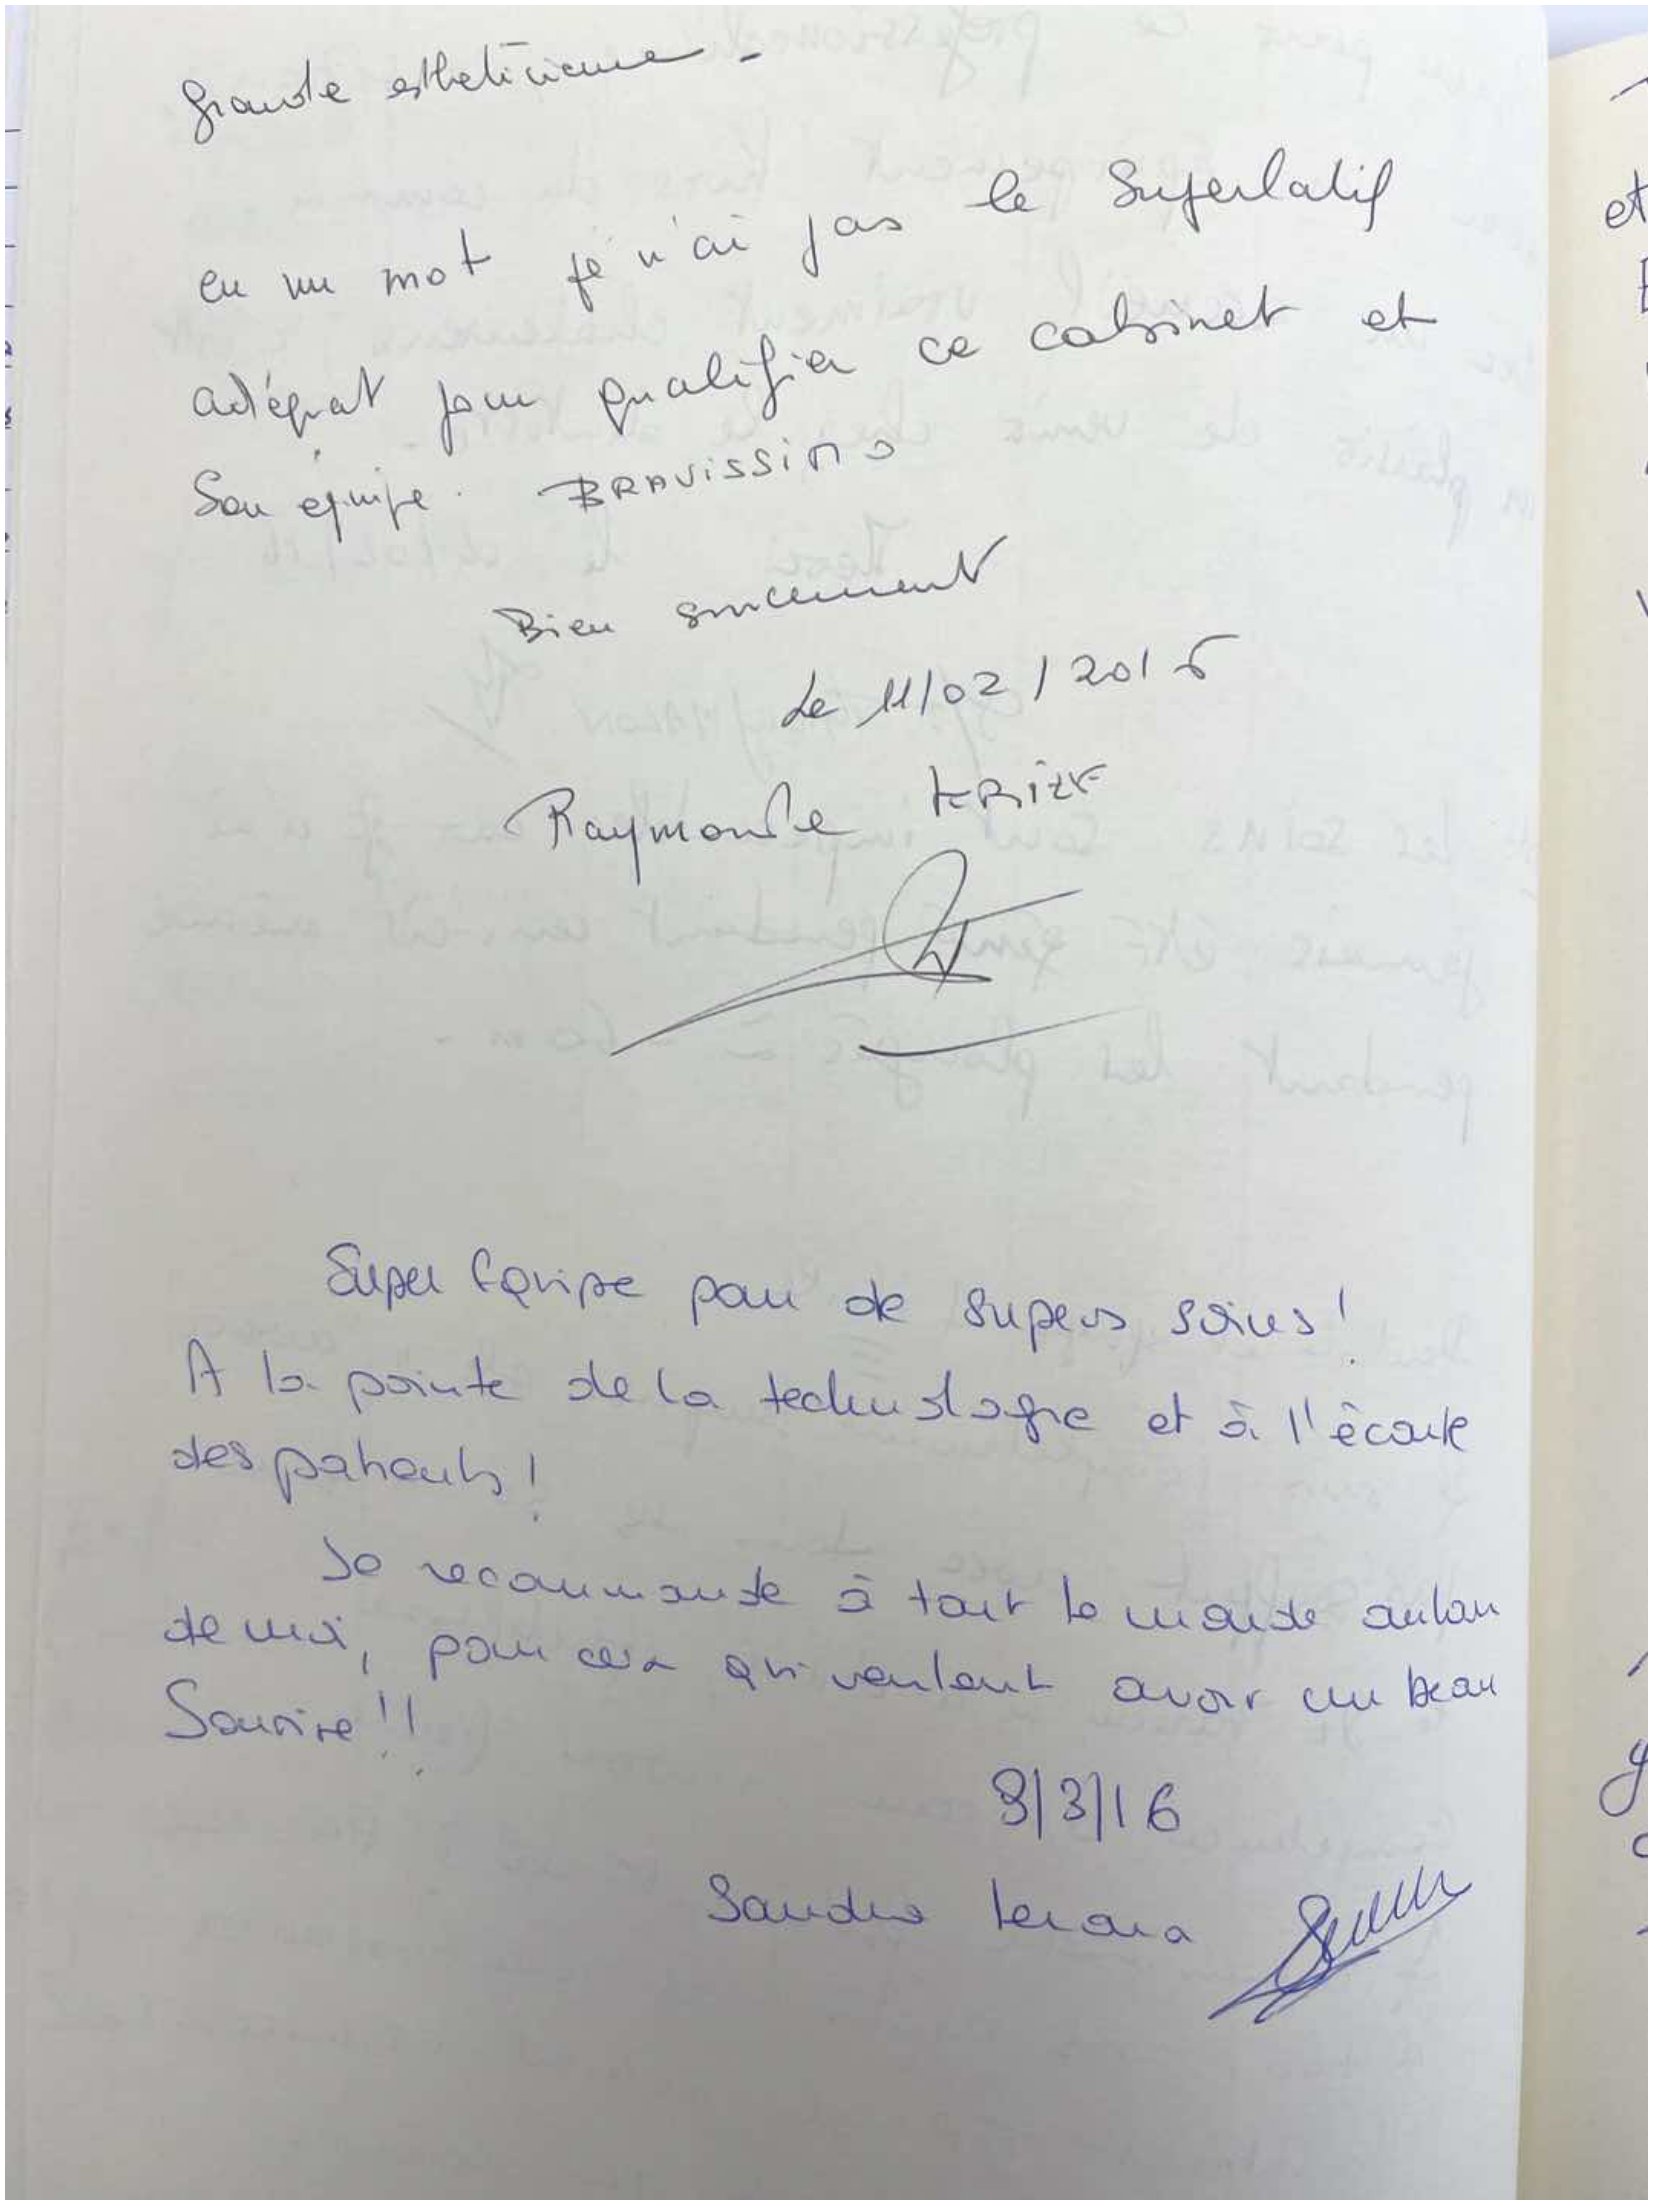 Grande esthéticienne -
en un mot je n'ai pas le Superlatif
adéquat pour qualifier ce cabinet et
Son équipe. BRAVISSIMO
Bien sincement
Le 11/02/2016
Raymonde
Super Equipe pour de supers soins!
A la pointe de la technologie et à l'écoute
des patients!
Je recommande à tout le monde autour
de moi, pour ceux qui veulent avoir un beau
Sourire!!
9/3/16
Sandra
et